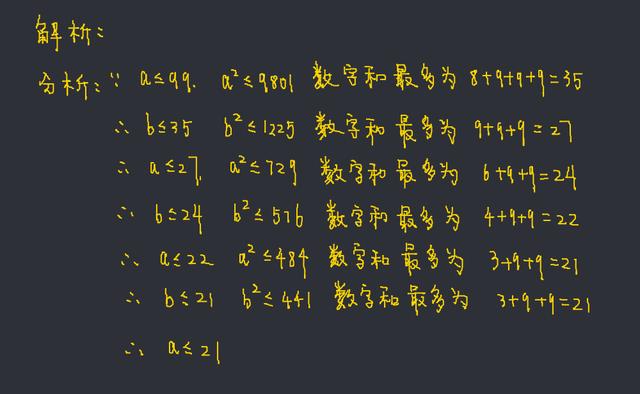 解析：
分析：∵ a≤99, a²≤9801 数字和最多为 8+9+9+9=35
∴ b≤35 b²≤1225 数字和最多为 9+9+9=27
∴ a≤27, a²≤729 数字和最多为 6+9+9=24
∴ b≤24 b²≤576 数字和最多为 4+9+9=22
∴ a≤22 a²≤484 数字和最多为 3+9+9=21
∴ b≤21 b²≤441 数字和最多为 3+9+9=21
∴ a≤21